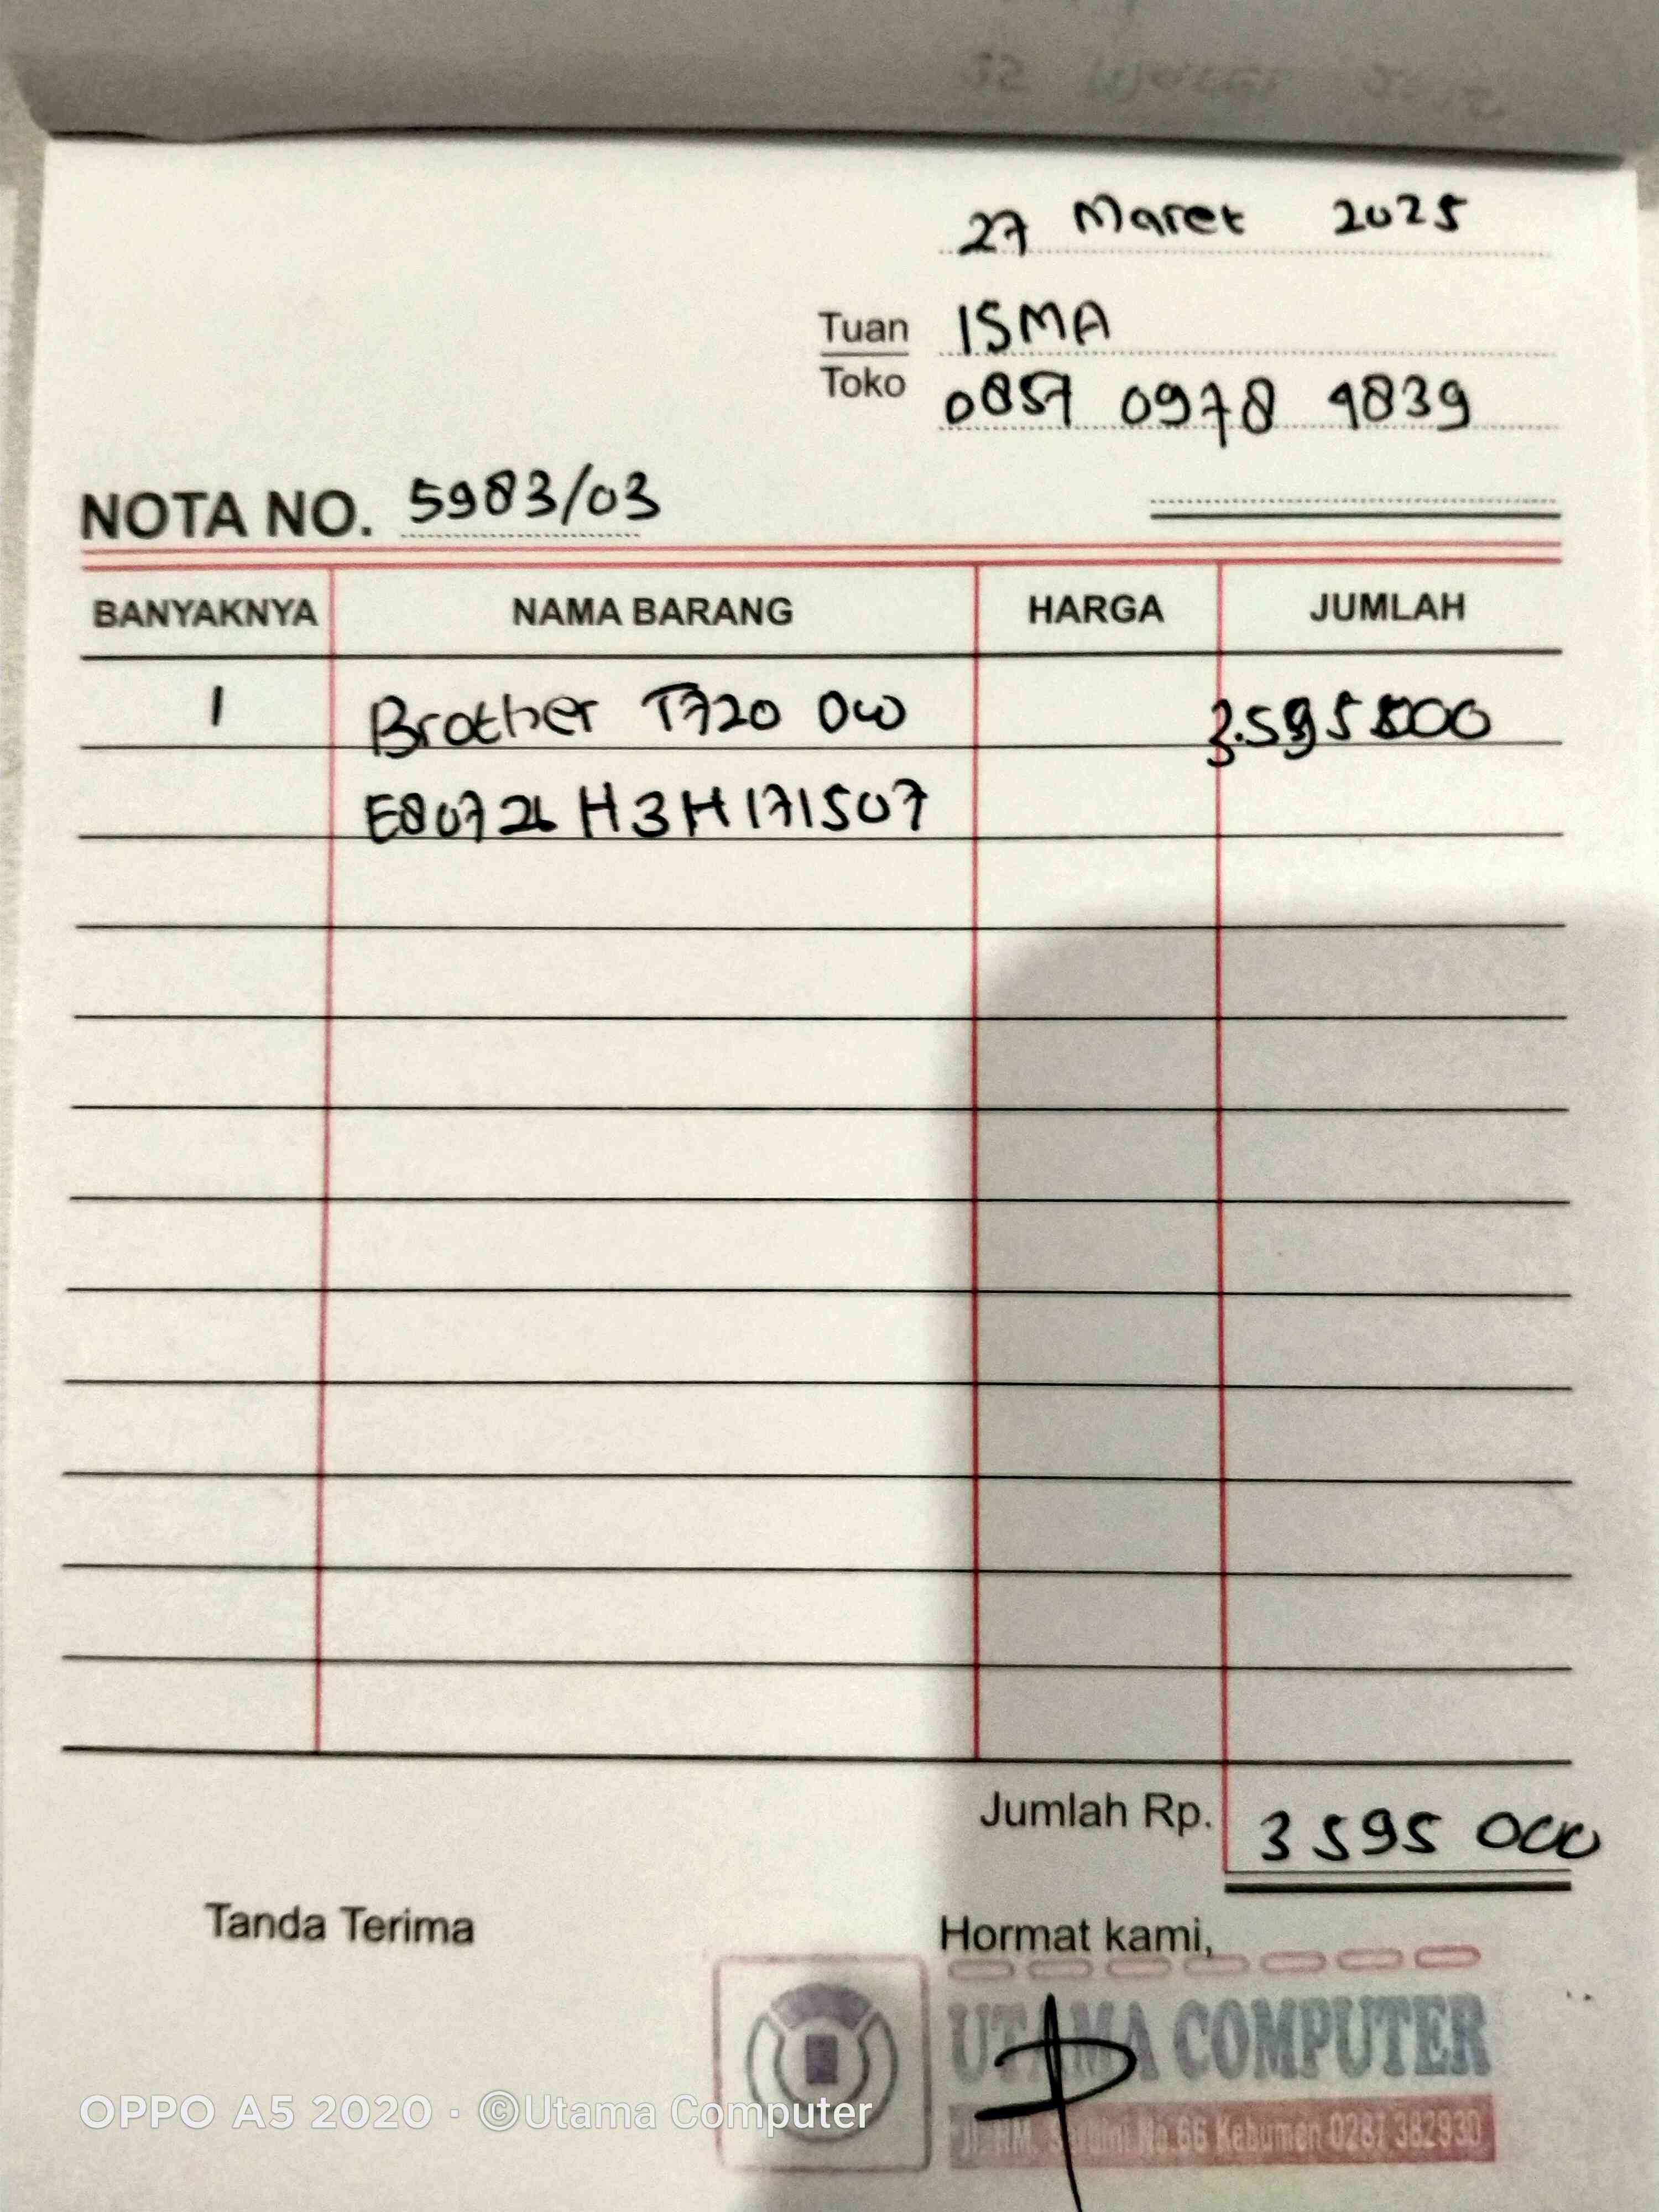 27 Maret 2025
Tuan ISMA
Toko 0857 0978 9839
NOTA NO. 5983/03
BANYAKNYA NAMA BARANG HARGA JUMLAH
1 Brother T720 DW 3.595000
E80726H3H171507
Jumlah Rp. 3 595 000
Tanda Terima Hormat kami,
UTAMA COMPUTER
No.66 Kebumen 0287 382930
OPPO A5 2020 · ©Utama Computer